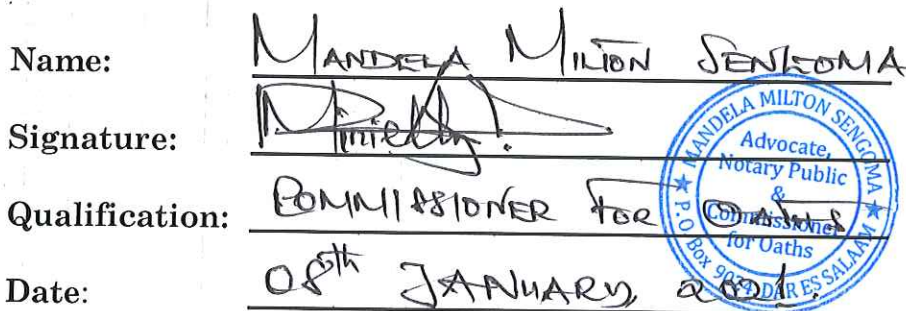 Name: MANDELA MILTON SENGOMA
Signature:
Qualification: COMMISSIONER FOR OATHS
Date: 08th JANUARY, 2021.
MANDELA MILTON SENGOMA
Advocate,
Notary Public
&
Commissioner
for Oaths
P.O Box DAR ES SALAAM